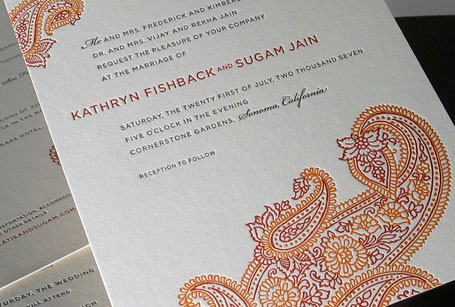 Mr. AND MRS. FREDERICK AND
DR. AND MRS. VIJAY AND REKHA JAIN
REQUEST THE PLEASURE OF YOUR COMPANY
AT THE MARRIAGE OF
KATHRYN FISHBACK AND SUGAM JAIN
SATURDAY, THE TWENTY FIRST OF JULY, TWO THOUSAND SEVEN
FIVE O'CLOCK IN THE EVENING
CORNERSTONE GARDENS, Sonoma, California
RECEPTION TO FOLLOW
HOTEL
ACCOMM
D OTHER DETAILS
ATIEANDSUGAM.COM
SATURDAY, THE WEDDING
ATTEND